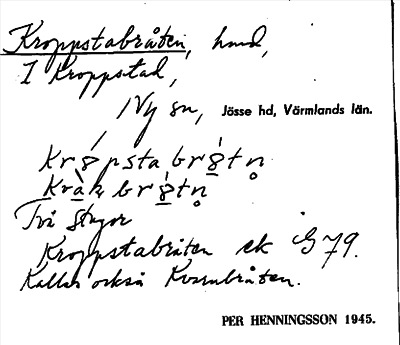 Kroppstabråten, hmd,
I Kroppstad,
Ny sn, Jösse hd, Värmlands län.
Två stugor
Kroppstabråten ek G 79.
Kallas också Kvarnbråten.
PER HENNINGSSON 1945.